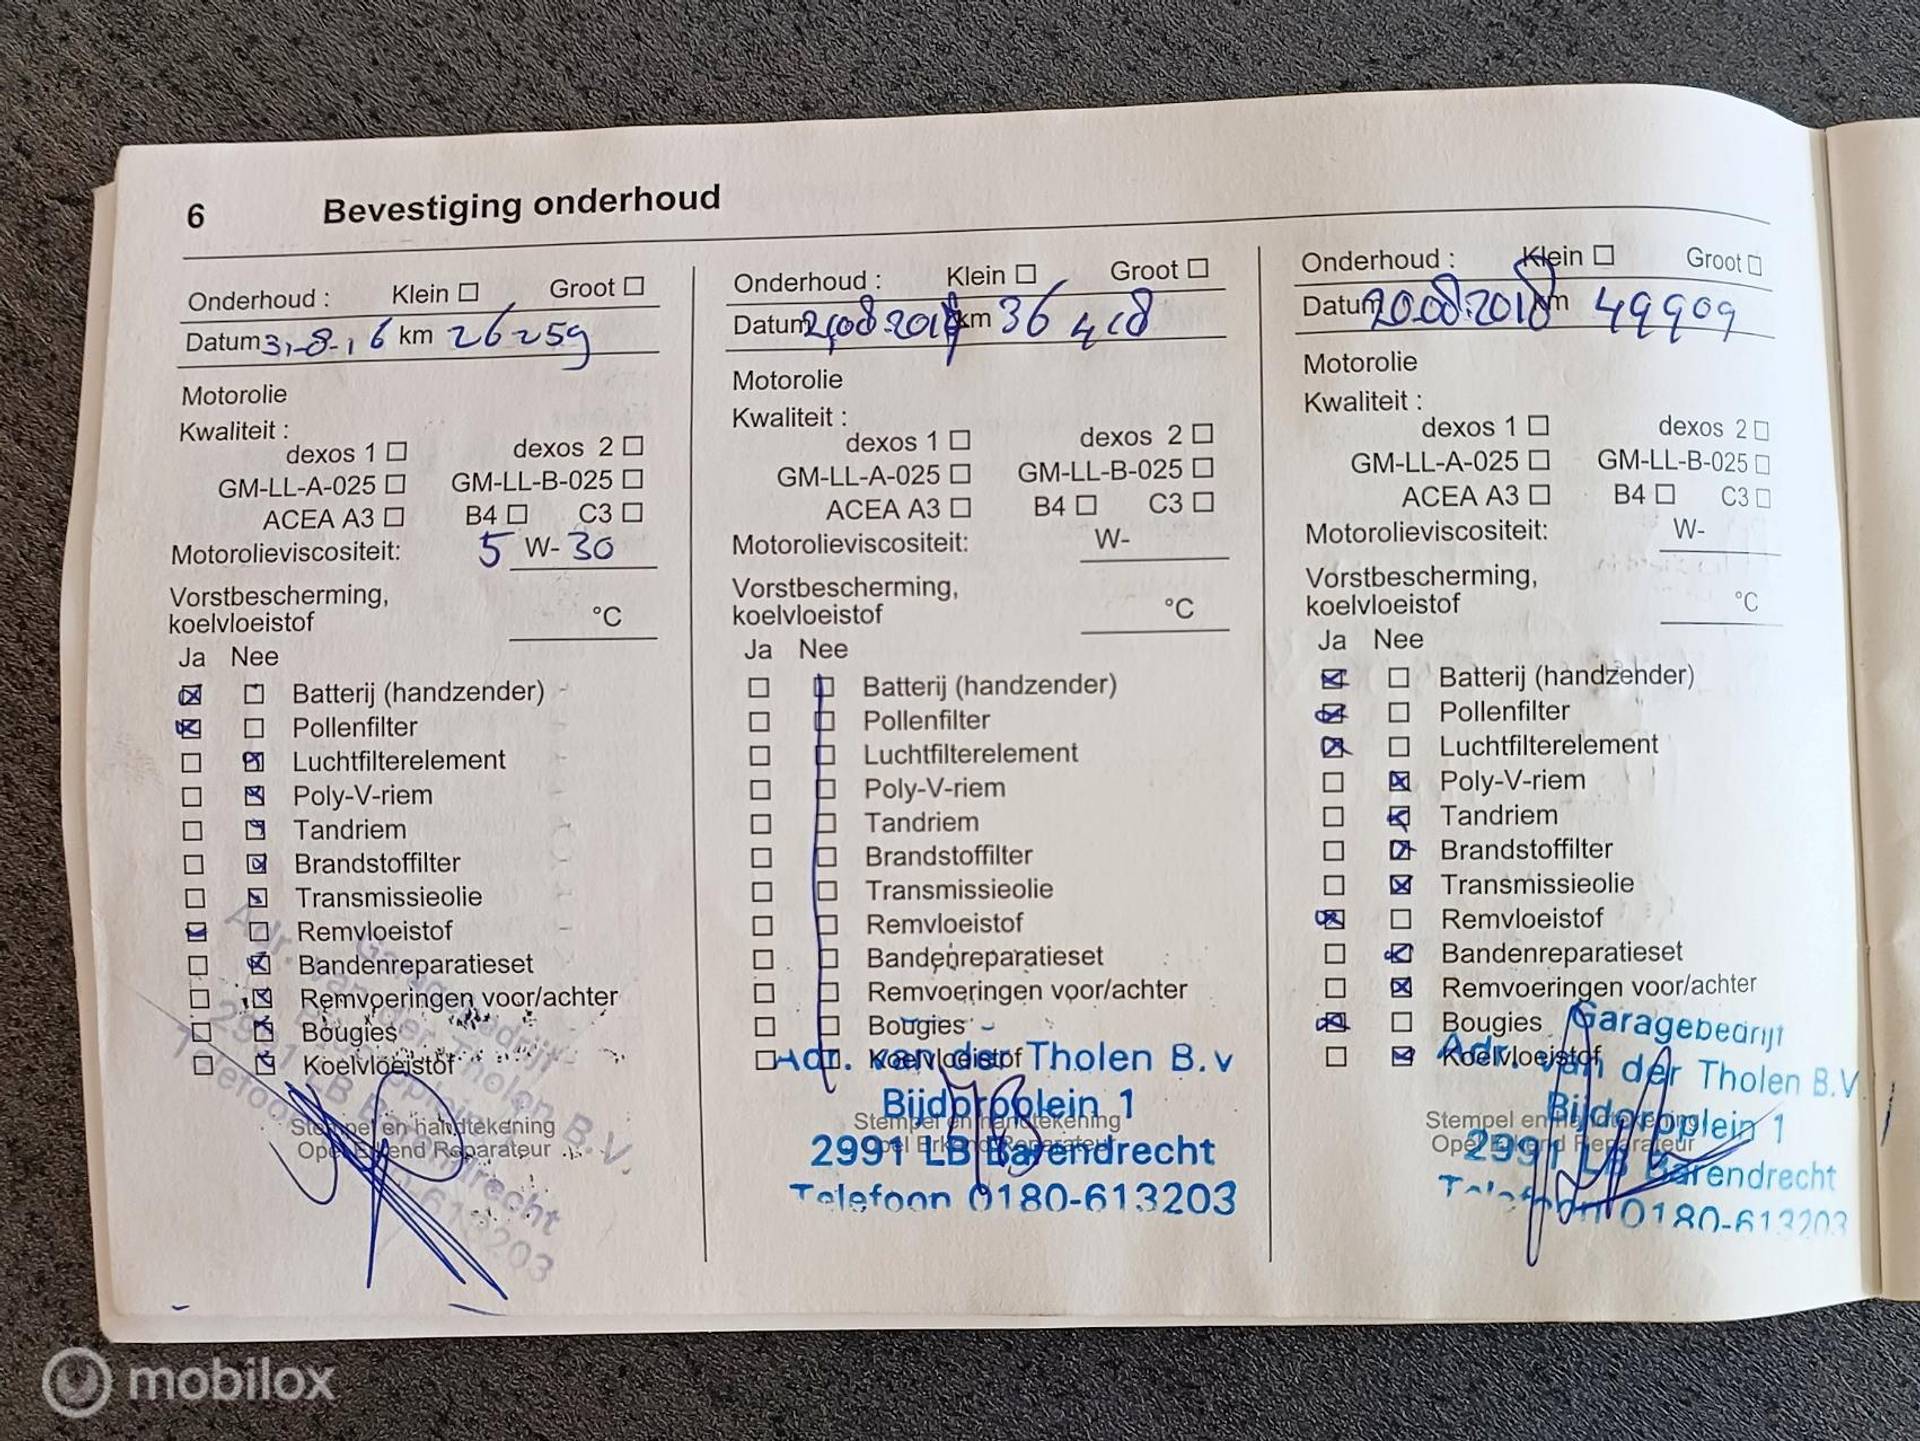 6 Bevestiging onderhoud
Onderhoud : Klein Groot
Datum 31-8-16 km 26259
Motorolie
Kwaliteit :
dexos 1 dexos 2
GM-LL-A-025 GM-LL-B-025
ACEA A3 B4 C3
Motorolieviscositeit: 5 W- 30
Vorstbescherming,
koelvloeistof °C
Ja Nee
Batterij (handzender)
Pollenfilter
Luchtfilterelement
Poly-V-riem
Tandriem
Brandstoffilter
Transmissieolie
Remvloeistof
Bandenreparatieset
Remvoeringen voor/achter
Bougies
Koelvloeistof
Stempel en handtekening
Opel Erkend Reparateur
Garagebedrijf
Adr. van der Tholen B.V.
2991 LB Barendrecht
Telefoon 0180-613203
Onderhoud : Klein Groot
Datum km 36418
Motorolie
Kwaliteit :
dexos 1 dexos 2
GM-LL-A-025 GM-LL-B-025
ACEA A3 B4 C3
Motorolieviscositeit: W-
Vorstbescherming,
koelvloeistof °C
Ja Nee
Batterij (handzender)
Pollenfilter
Luchtfilterelement
Poly-V-riem
Tandriem
Brandstoffilter
Transmissieolie
Remvloeistof
Bandenreparatieset
Remvoeringen voor/achter
Bougies
Koelvloeistof
Adr. van der Tholen B.v
Bijdorpplein 1
Stempel en handtekening
Opel Erkend Reparateur
2991 LB Barendrecht
Telefoon 0180-613203
Onderhoud : Klein Groot
Datum 20.08.2018 km 49909
Motorolie
Kwaliteit :
dexos 1 dexos 2
GM-LL-A-025 GM-LL-B-025
ACEA A3 B4 C3
Motorolieviscositeit: W-
Vorstbescherming,
koelvloeistof °C
Ja Nee
Batterij (handzender)
Pollenfilter
Luchtfilterelement
Poly-V-riem
Tandriem
Brandstoffilter
Transmissieolie
Remvloeistof
Bandenreparatieset
Remvoeringen voor/achter
Bougies
Koelvloeistof
Garagebedrijf
Adr. van der Tholen B.V.
Bijdorpplein 1
Stempel en handtekening
Opel Erkend Reparateur
2991 LB Barendrecht
Telefoon 0180-613203
mobilox